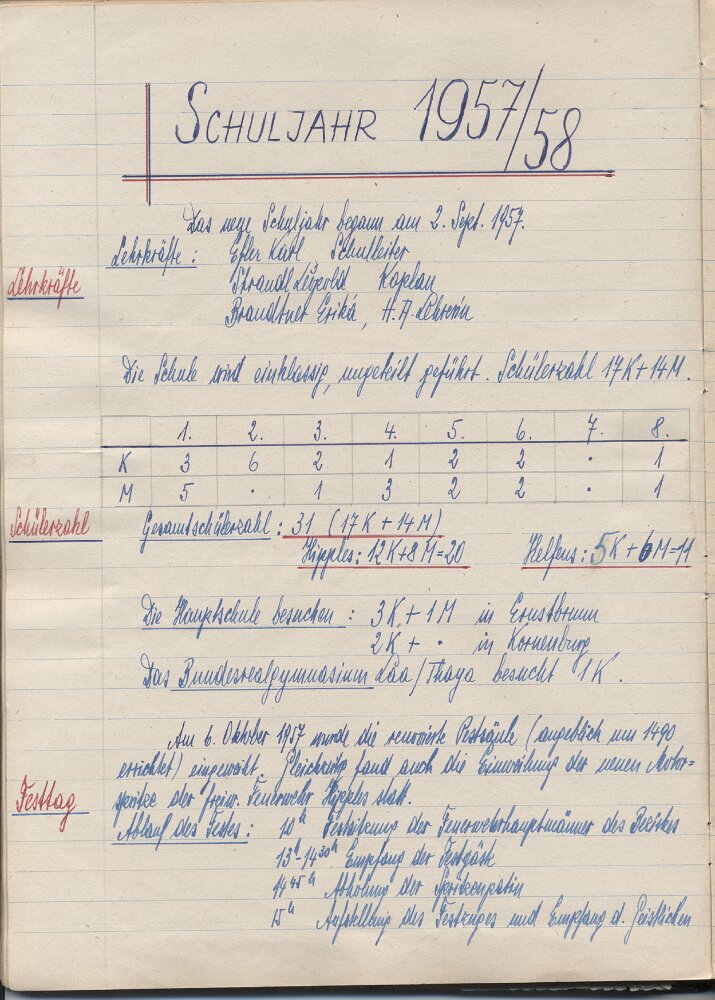 SCHULJAHR 1957/58
Das neue Schuljahr begann am 2. Sept. 1957.
Lehrkräfte
Lehrkräfte : Efler Karl Schulleiter
Strandl Leopold Kaplan
Brandtner Erika, H.A. Lehrerin
Die Schule wird einklassig, ungeteilt geführt. Schülerzahl 17 K + 14 M.
1. 2. 3. 4. 5. 6. 7. 8.
K 3 6 2 1 2 2 · 1
M 5 · 1 3 2 2 · 1
Schülerzahl
Gesamtschülerzahl : 31 (17 K + 14 M)
Hipples : 12 K + 8 M = 20 Helfens : 5 K + 6 M = 11
Die Hauptschule besuchen : 3 K + 1 M in Ernstbrunn
2 K + · in Korneuburg
Das Bundesrealgymnasium Laa/Thaya besucht 1 K.
Am 6. Oktober 1957 wurde die renovierte Pestsäule (angeblich um 1490
errichtet) eingeweiht. Gleichzeitig fand auch die Einweihung der neuen Motor=
Festtag
spritze der freiw. Feuerwehr Hipples statt.
Ablauf des Festes : 10h Festsitzung der Feuerwehrhauptmänner des Bezirkes
13h - 14 30h Empfang der Festgäste
14 45h Abholung der Spritzenpatin
15h Aufstellung des Festzuges und Empfang d. Geistlichen